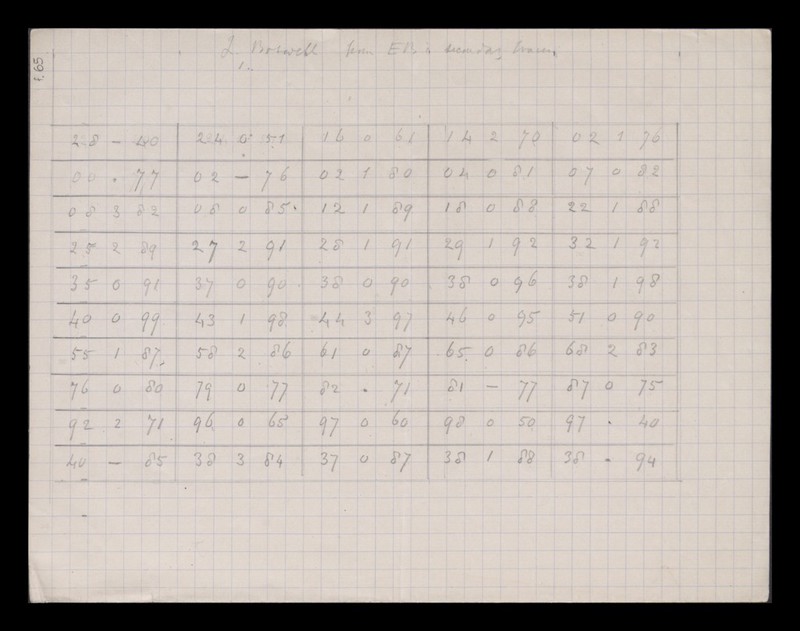 f. 65
L. Boswell from EB's secondary traces
1.
28 - 40 24 0 51 16 0 61 14 2 70 02 1 76
00 . 77 02 - 76 02 1 80 04 0 81 07 0 82
08 3 82 08 0 85 12 1 89 18 0 88 22 1 88
25 2 89 27 2 91 28 1 91 29 1 92 32 1 92
35 0 91 37 0 90 38 0 90 38 0 96 38 1 98
40 0 99 43 1 98 44 3 97 46 0 95 51 0 90
55 1 87 58 2 86 61 0 87 65 0 86 68 2 83
76 0 80 79 0 77 82 . 71 81 - 77 87 0 75
92 2 71 96 0 65 97 0 60 98 0 50 97 . 40
40 - 85 38 3 84 37 0 87 38 1 88 38 - 94